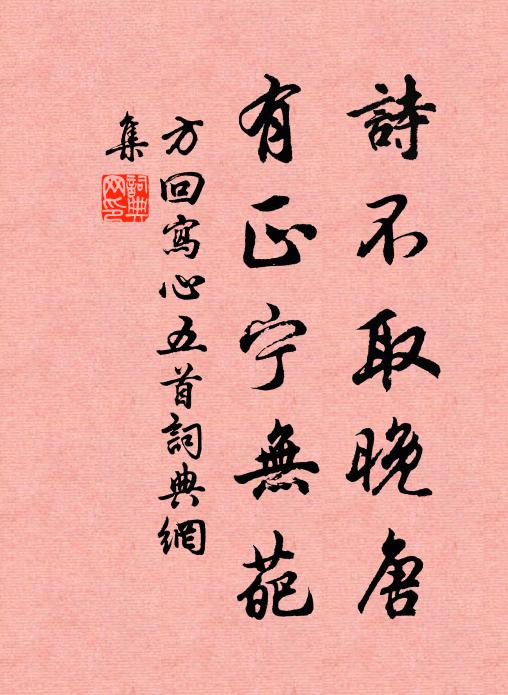 詩不取晚唐
有正宁無葩
方回寫心五首詞典網
集
詞典网印